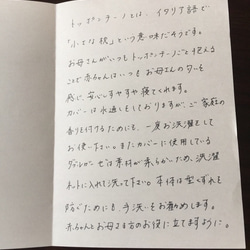 トッポンチーノとは、イタリア語で
「小さな枕」という意味だそうです。
お母さんがいつもトッポンチーノごと抱える
ことで赤ちゃんはいつもお母さんの匂いを
感じ、安心しすやすや寝てくれます。
カバーは水通しをしておりますが、ご家庭の
香りを付けるためにも、一度お洗濯をして
お使い下さい。またカバーに使用している
ダブルガーゼは素材が柔らかいため、洗濯
ネットに入れて洗って下さい。本体は型くずれを
防ぐためにも手洗いをお勧めします。
赤ちゃんとお母さま方のお役に立てますように。